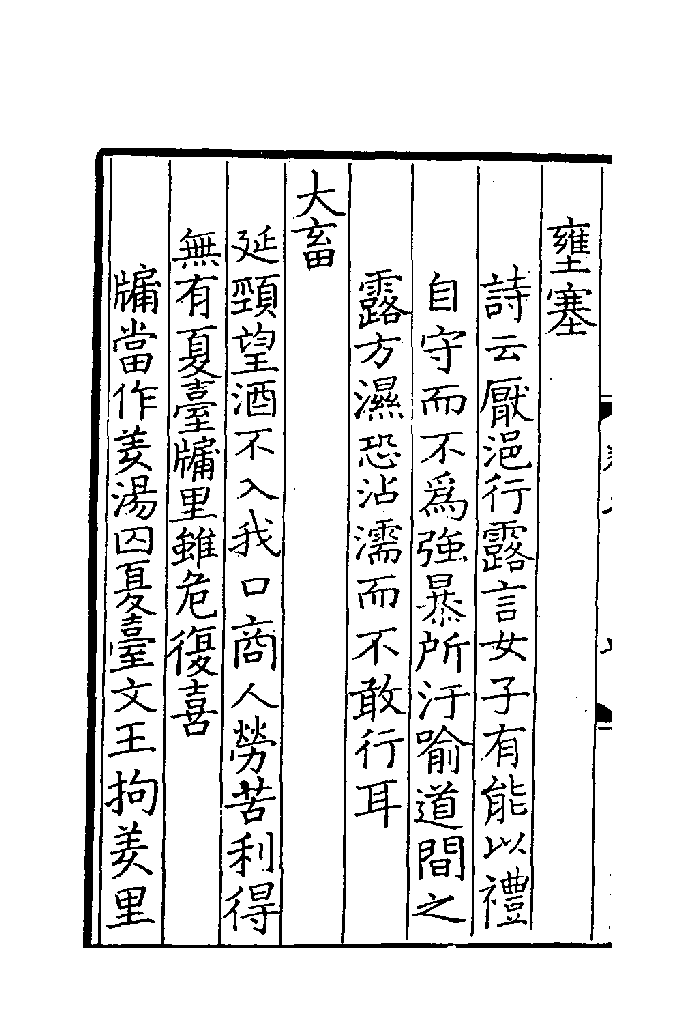 壅塞
詩云厭浥行露言女子有能以禮
自守而不爲強暴所汙喻道間之
露方濕恐沾濡而不敢行耳
大畜
延頸望酒不入我口商人勞苦利得
無有夏臺牖里雖危復喜
牖當作羑湯囚夏臺文王拘羑里